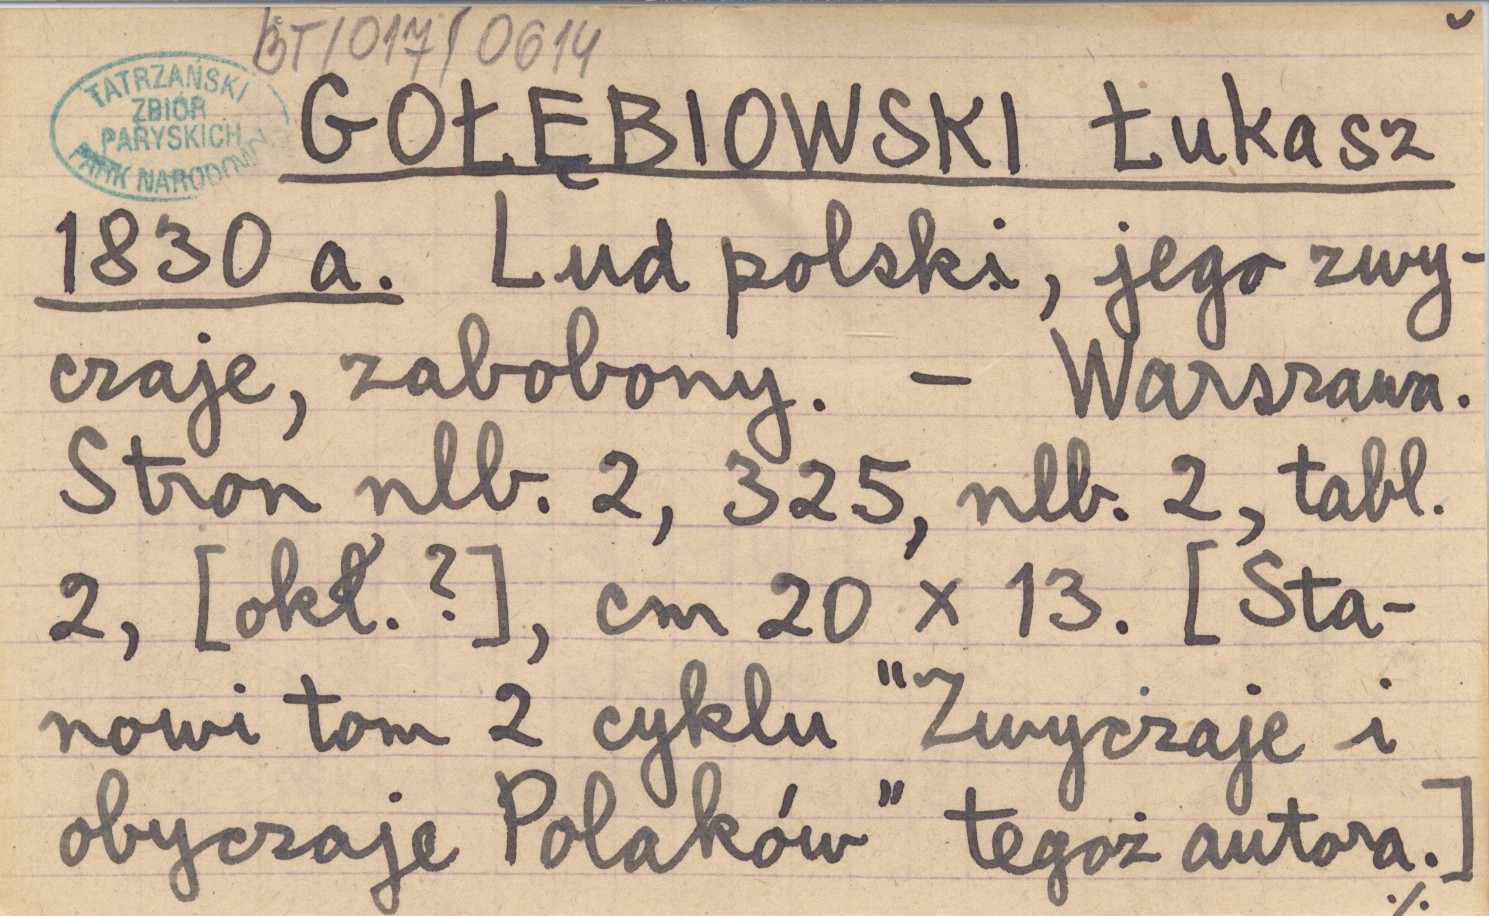 BT/017/0614
TATRZAŃSKI
ZBIÓR
PARYSKICH
PARK NARODOWY
GOŁĘBIOWSKI Łukasz
1830 a. Lud polski, jego zwy-
czaje, zabobony. – Warszawa.
Stron nlb. 2, 325, nlb. 2, tabl.
2, [okł. ?], cm 20 × 13. [Sta-
nowi tom 2 cyklu "Zwyczaje i
obyczaje Polaków" tegoż autora.]
./.